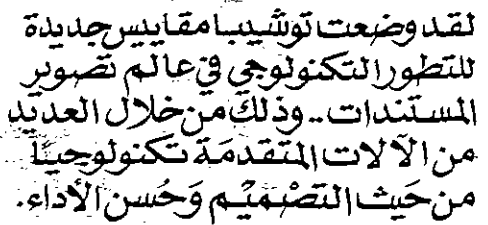 لقد وضعت توشيبا مقاييس جديدة
للتطور التكنولوجي في عالم تصوير
المستندات .. وذلك من خلال العديد
من الآلات المتقدمة تكنولوجيـاً
من حيث التصميم وحسن الأداء .